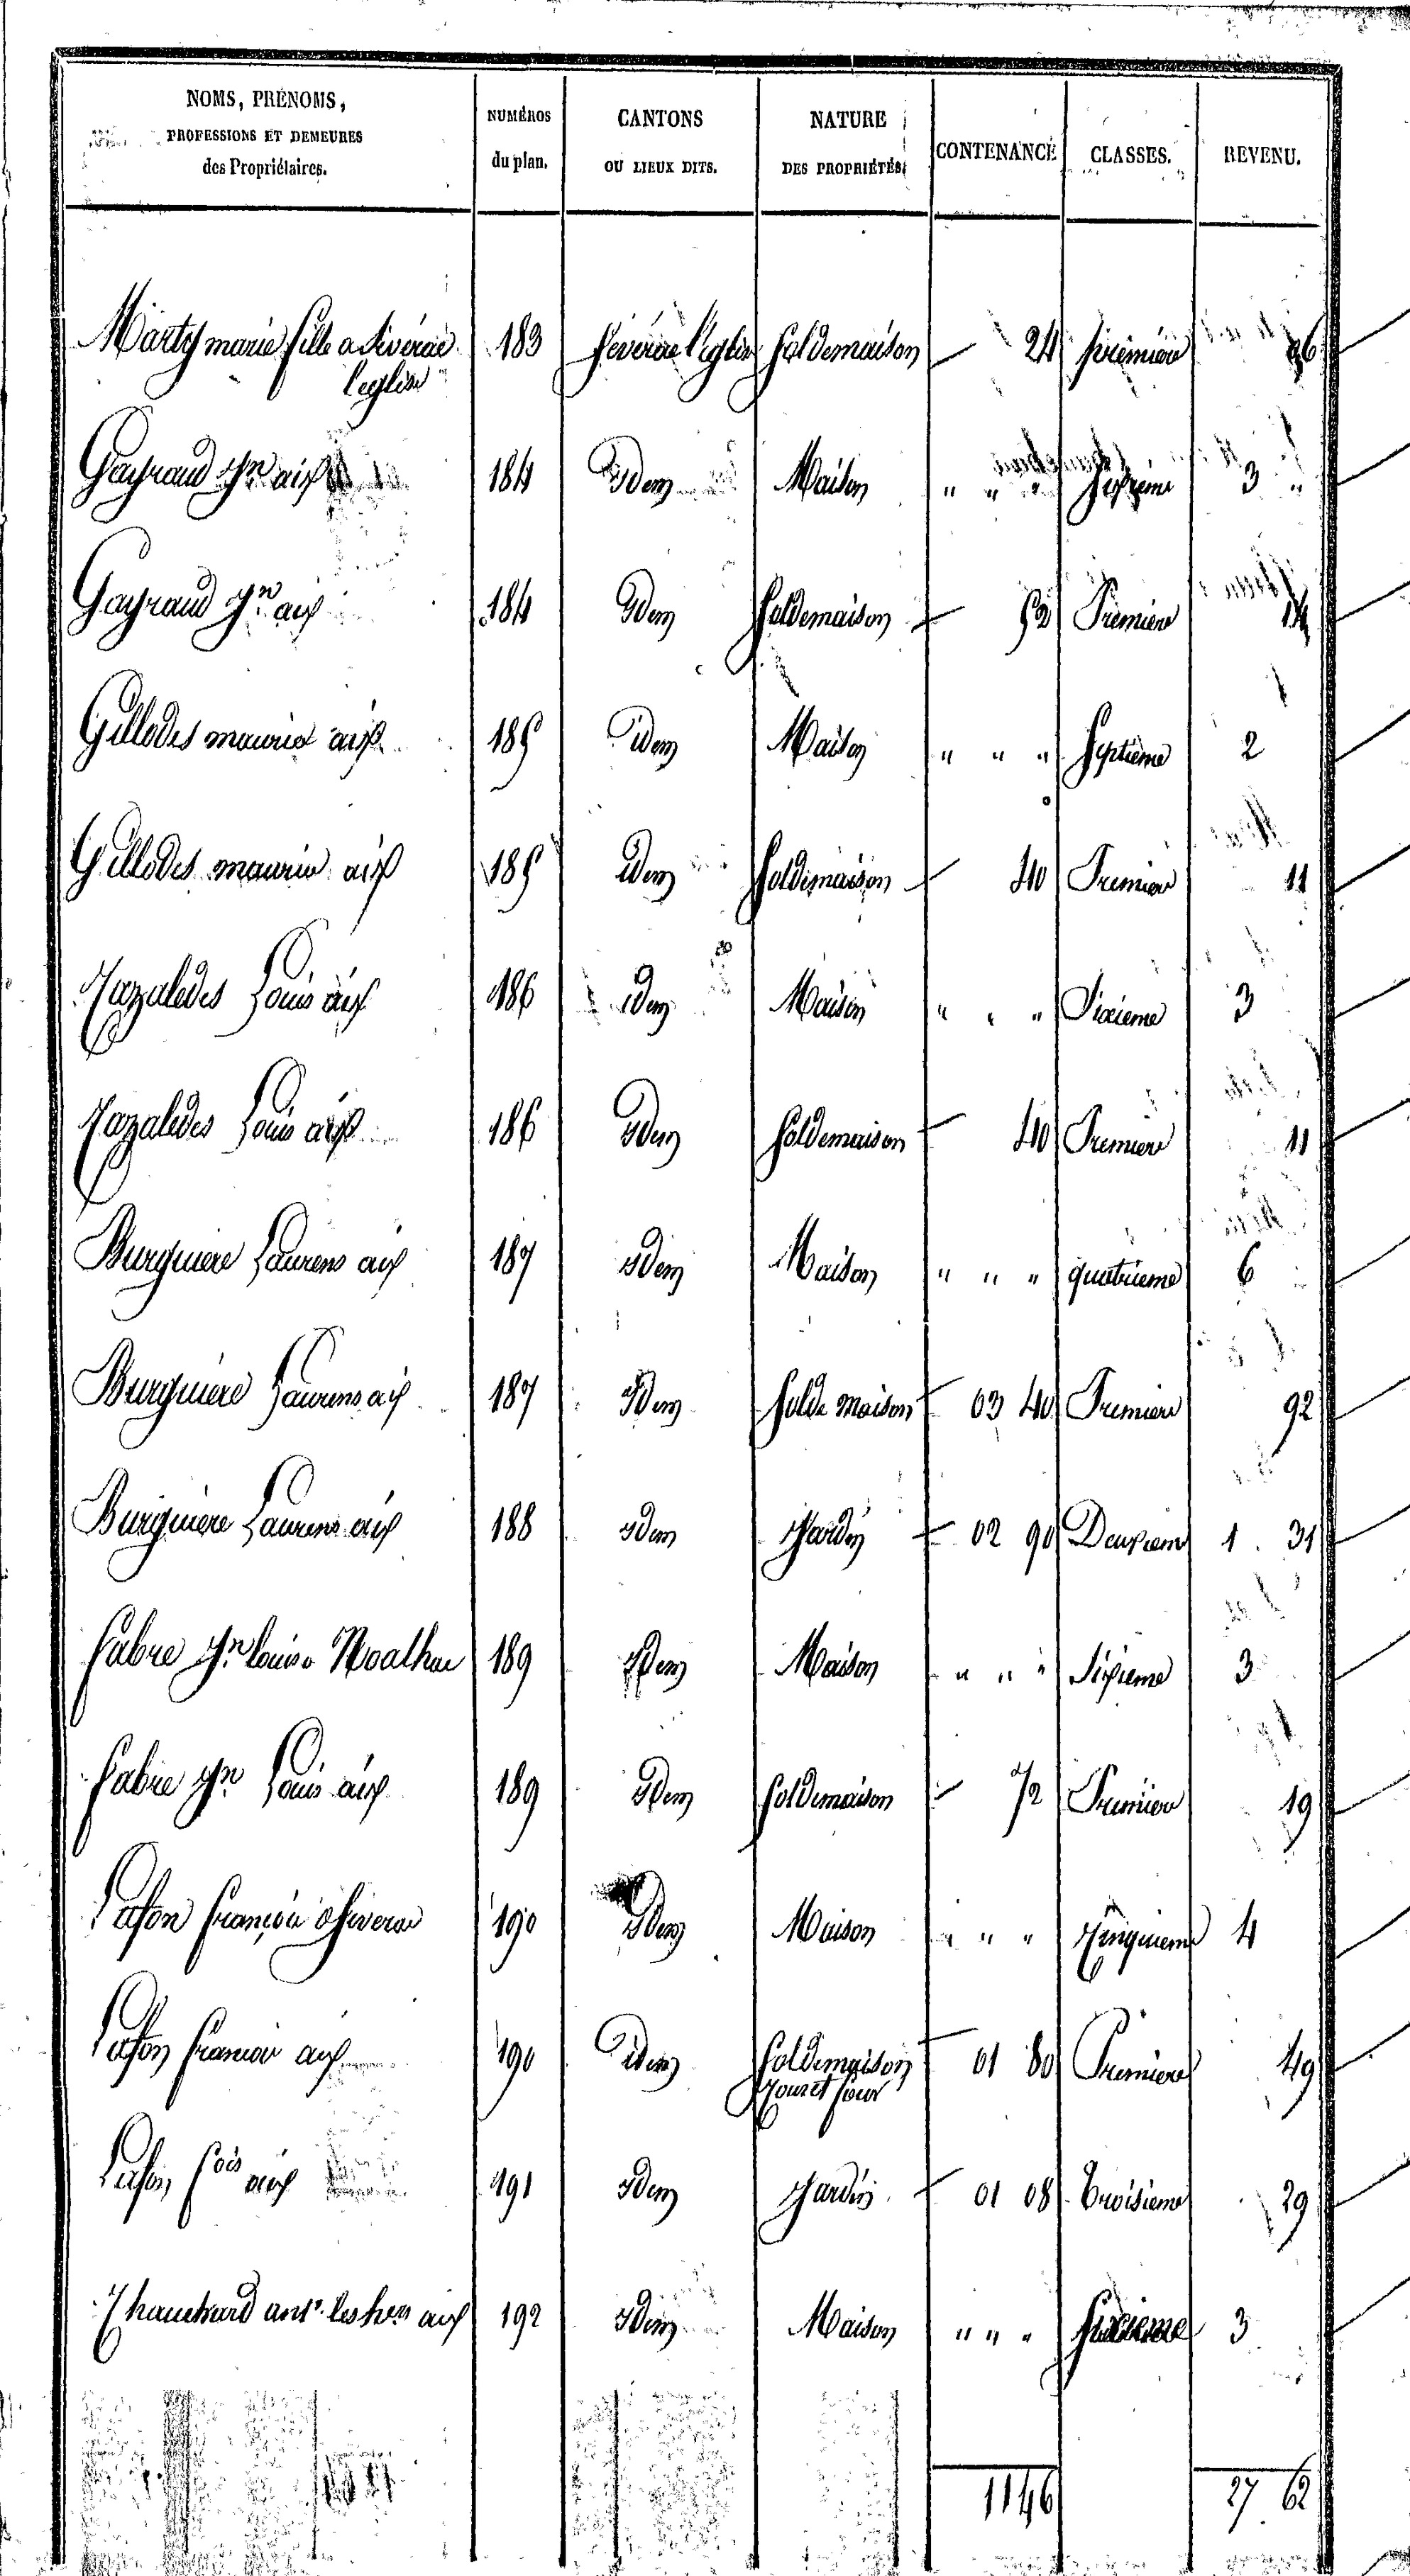 NOMS, PRÉNOMS, PROFESSIONS ET DEMEURES des Propriétaires. | NUMÉROS du plan. | CANTONS OU LIEUX DITS. | NATURE DES PROPRIÉTÉS. | CONTENANCE | CLASSES. | REVENU.
Marty marie fille a Séverac l'eglise 183 Séverac l'eglise Sol de maison 24 premiere 06
Gayraud Jn aip 184 Idem Maison " " " Sixieme 3 "
Gayraud Jn aip 184 Idem Sol de maison 52 Premiere 14
Gillodes maurice aip 185 idem Maison " " " Septieme 2
Gillodes maurice aip 185 idem Sol de maison 40 Premiere 11
Cazalèdes Louis aip 186 idem Maison " " " Sixieme 3
Cazalèdes Louis aip 186 idem Sol de maison 40 Premiere 11
Burguiere Laurens aip 187 idem Maison " " " quatrieme 6
Burguiere Laurens aip 187 idem Sol de maison 03 40 Premiere 92
Burguiere Laurens aip 188 idem Jardin 02 90 Deuxieme 1 31
Fabre Jn louis a Noalhac 189 idem Maison " " " Sixieme 3
Fabre Jn Louis aip 189 idem Sol de maison 72 Premiere 19
Lafon françois a Severac 190 idem Maison " " " Cinquieme 4
Lafon françois aip 190 idem Sol de maison 01 80 Premiere 49
Cour et four
Lafon fois aip 191 idem Jardin 01 08 Troisieme 29
Chauchard ante les hers aip 192 idem Maison " " " Sixieme 3
1146 27 62